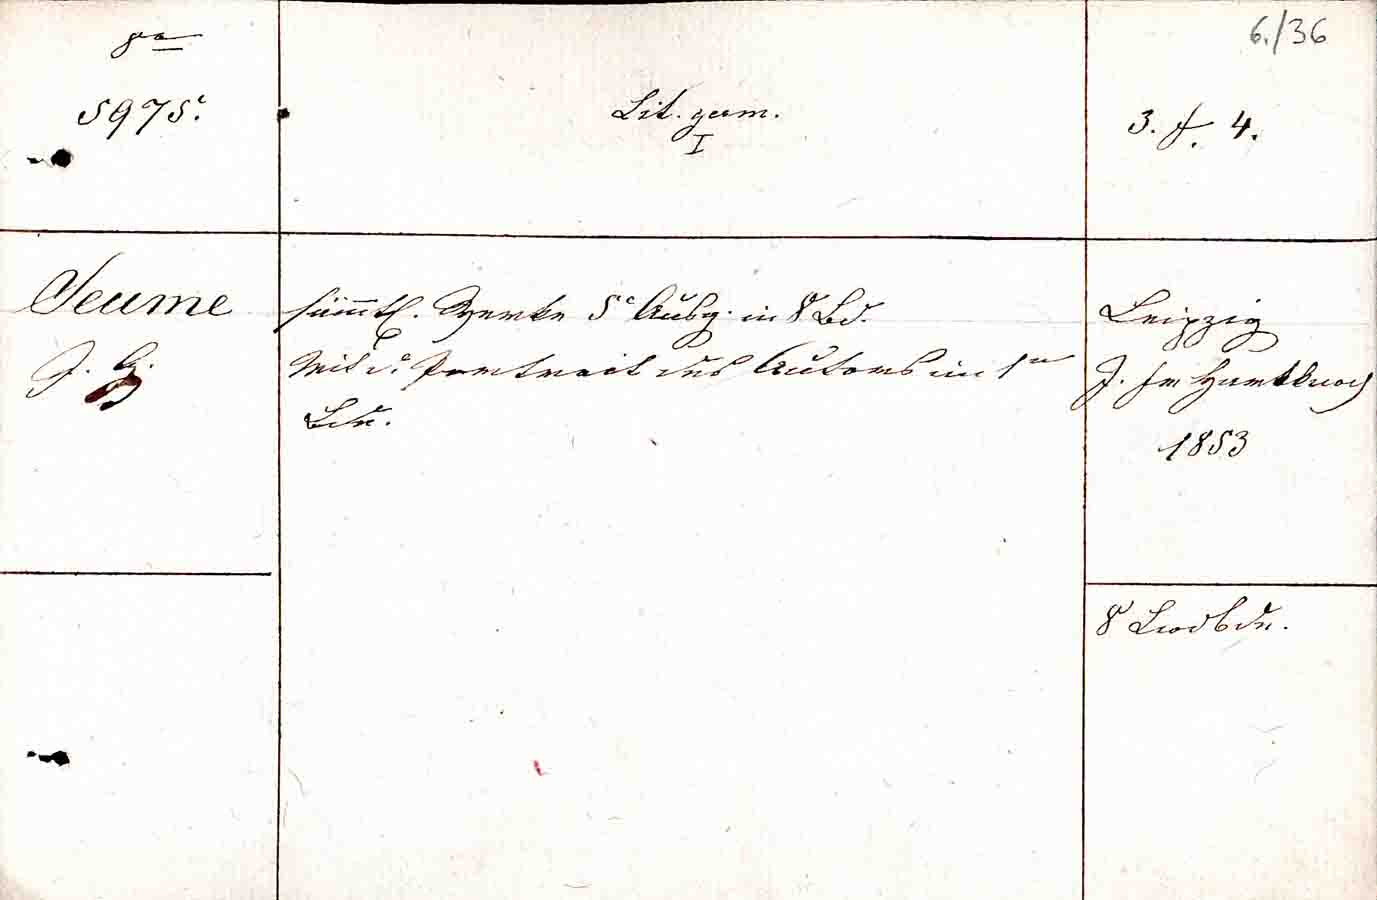 6./36
8°
5975.
Lit. germ.
I
3. f. 4.
Seume
J. G.
sämmtl. Werke 5e Ausg. in 8 Bd.
Mit d. Portrait des Autors im 1n
Bde.
Leipzig
J. Fr Hartknoch
1853
8 Lwdbde.